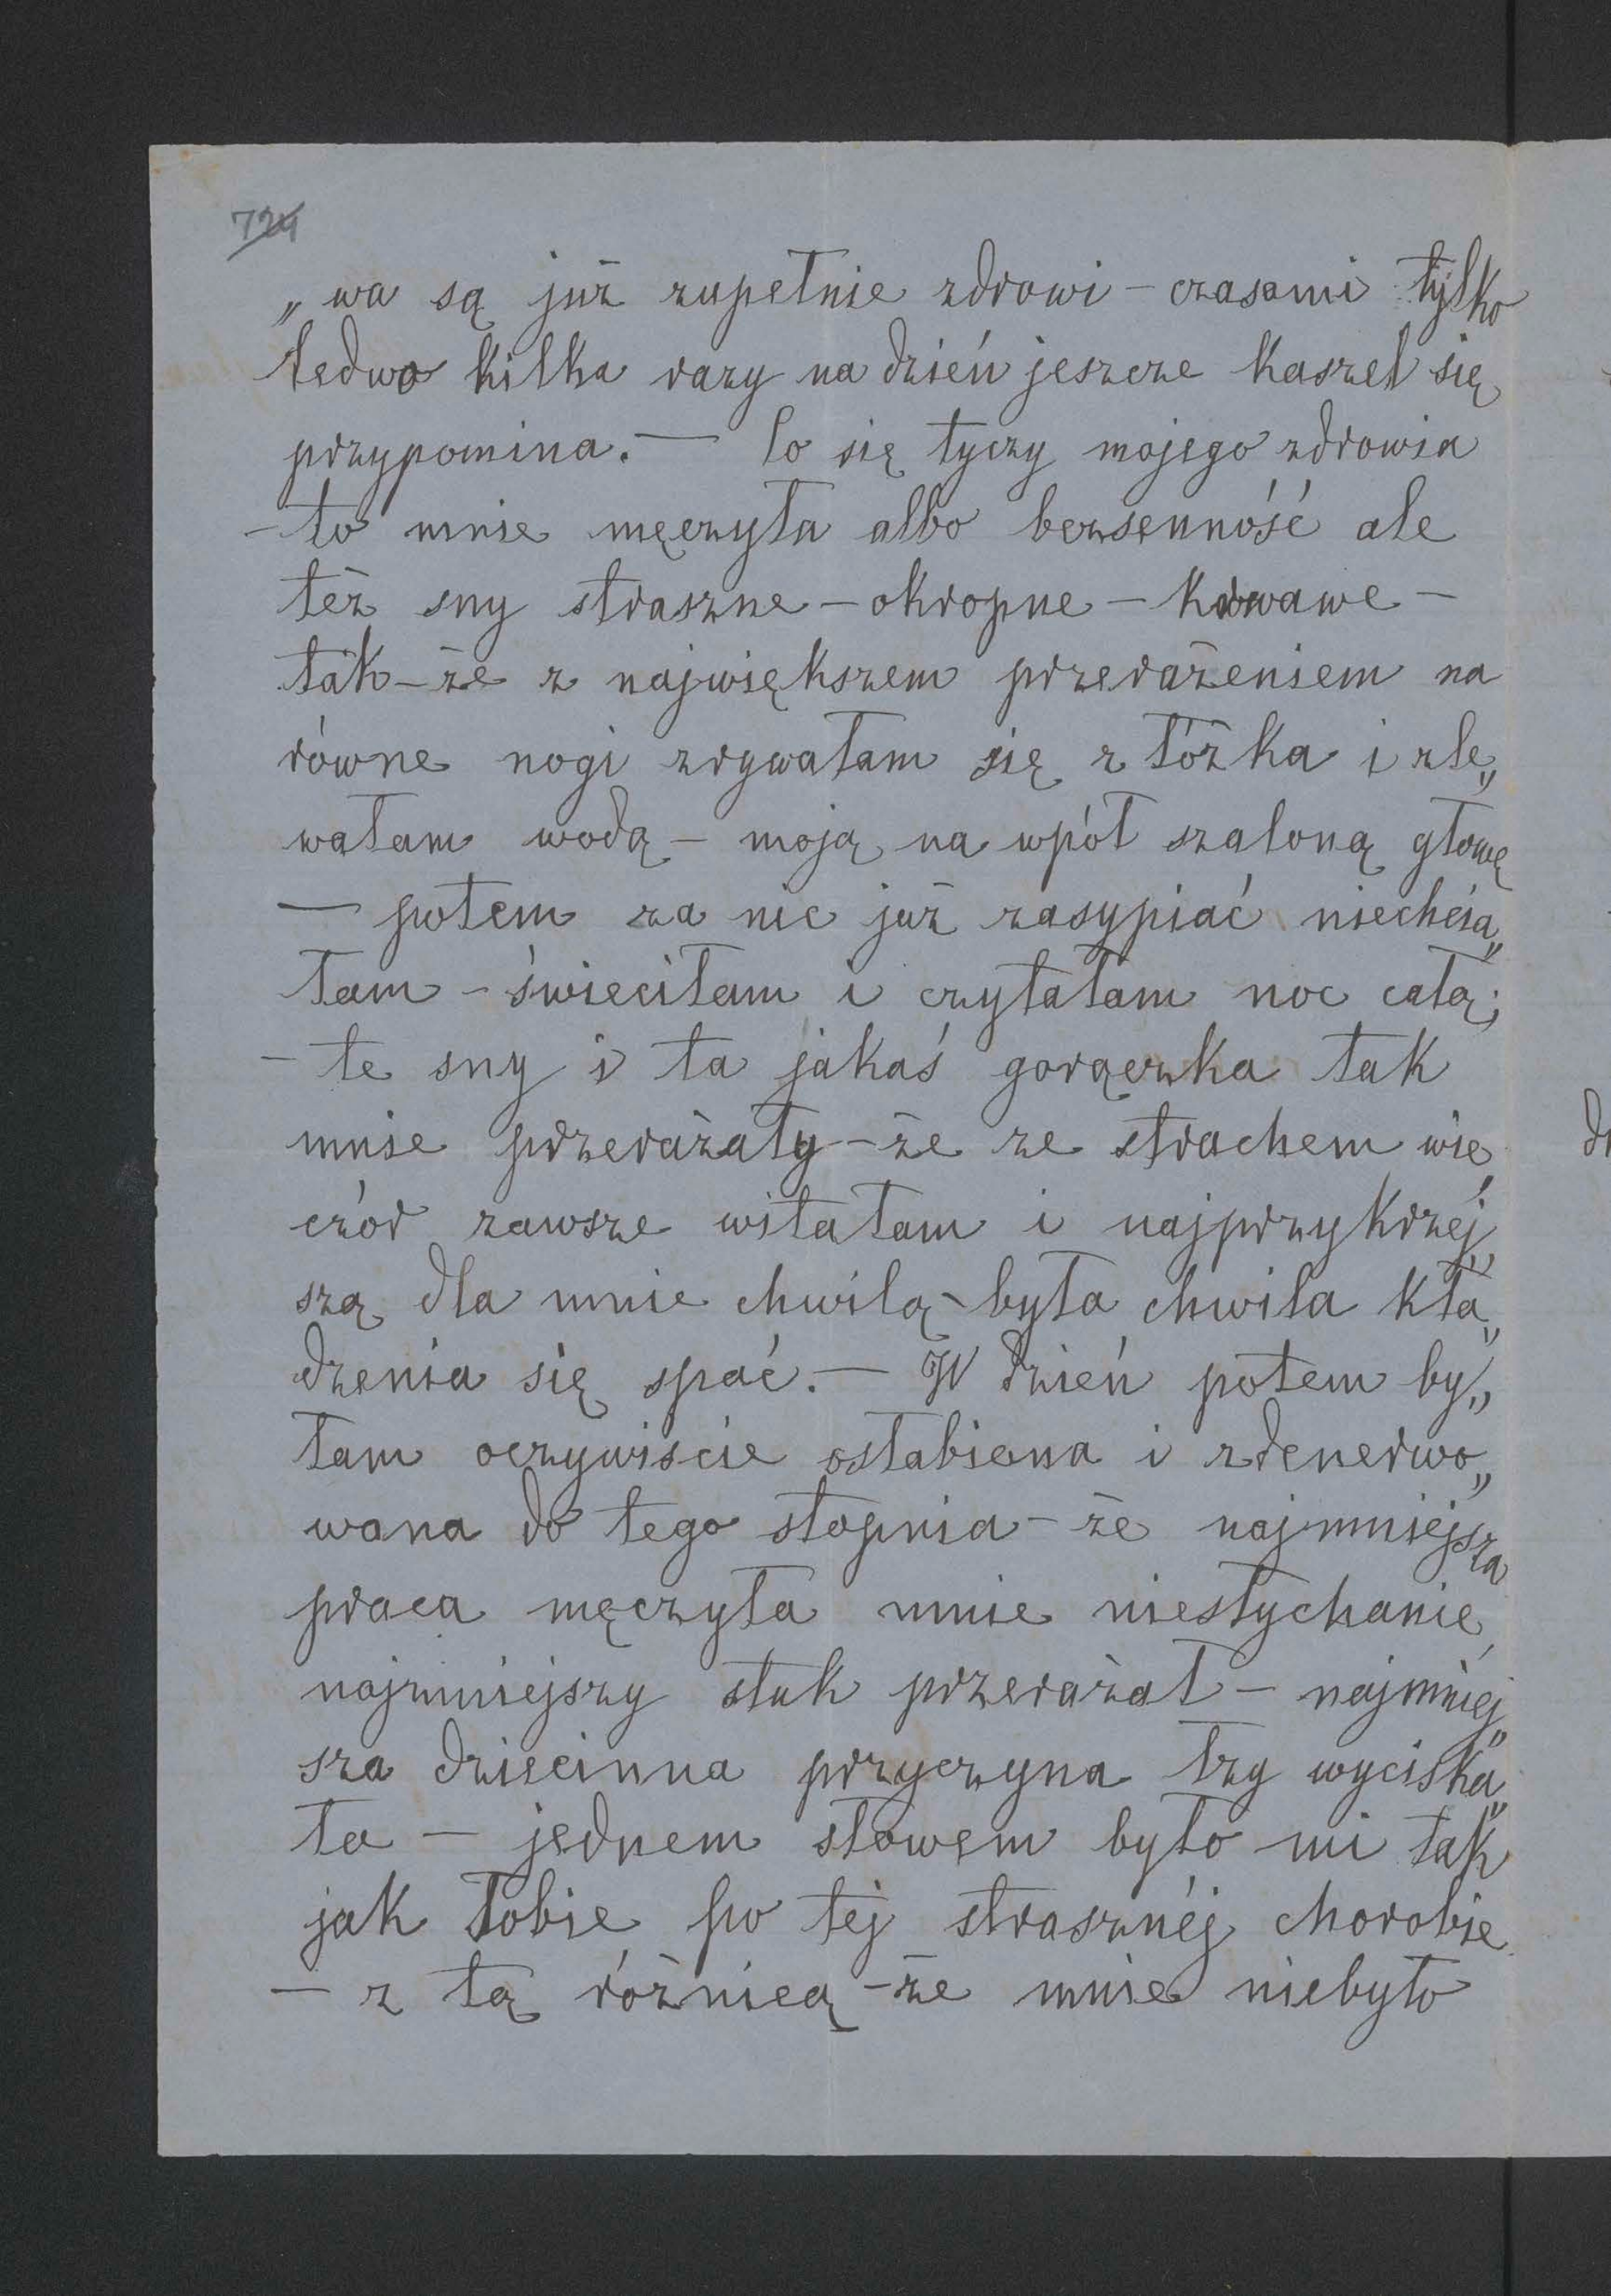 724
„wa są już zupełnie zdrowi – czasami tylko
ledwo kilka razy na dzień jeszcze kaszel się
przypomina. — Co się tyczy mojego zdrowia
– to mnie męczyła albo bezsenność ale
też sny straszne – okropne – krwawe –
tak – że z największem przerażeniem na
równe nogi zrywałam się z łóżka i zle„
wałam wodą – moją na wpół szaloną głowę
— potem za nic już zasypiać niechcia„
łam – świeciłam i czytałam noc całą;
– te sny i ta jakaś gorączka tak
mnie przerażały – że ze strachem wie„
czór zawsze witałam i najprzykrzéj„
szą dla mnie chwilą – była chwila kła„
dzenia się spać. — W dzień potem by„
łam oczywiscie osłabiona i zdenerwo„
wana do tego stopnia – że najmniejsza
praca męczyła mnie niesłychanie,
najmniejszy stuk przerażał – najmniéj„
sza dziecinna przyczyna łzy wyciska„
ła — jednem słowem było mi tak
jak Tobie po tej strasznéj chorobie
– z tą różnicą – że mnie niebyło